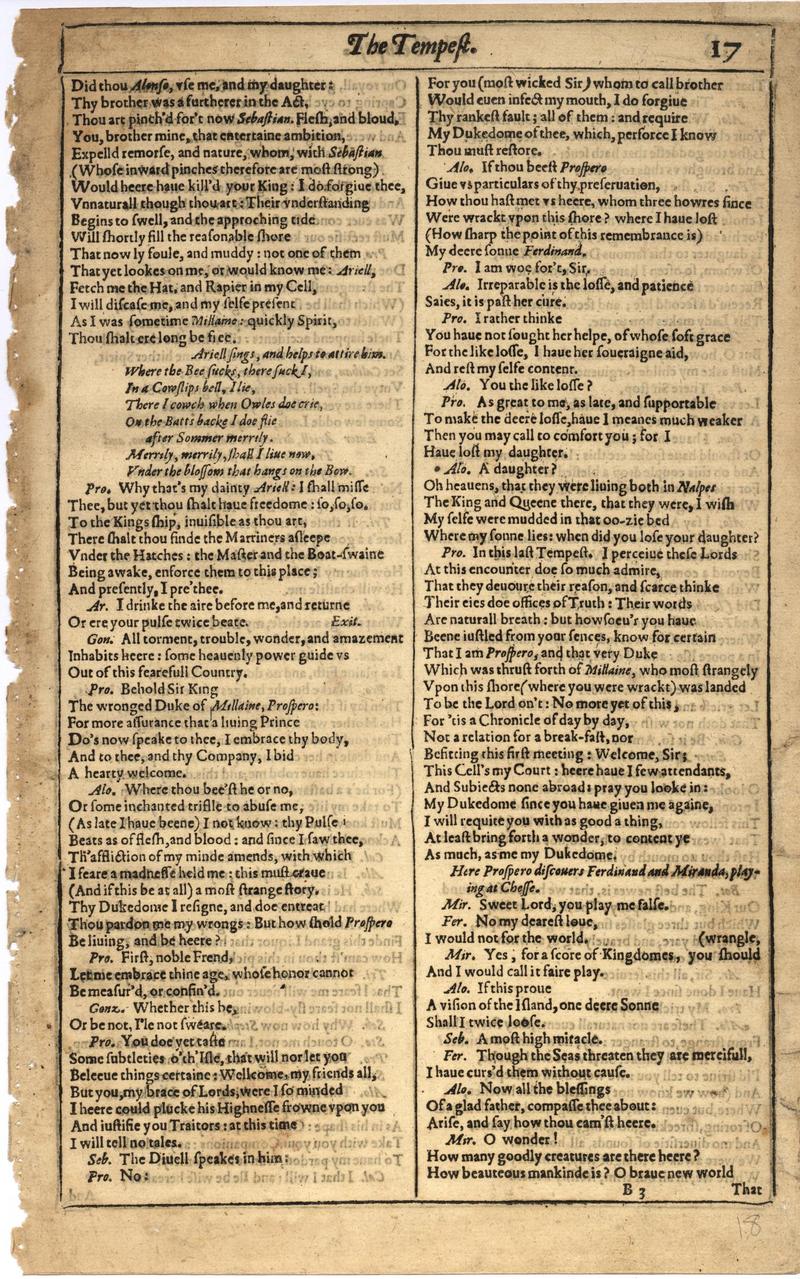 The Tempeſt.
17
Did thou Alonſo, vſe me, and my daughter:
Thy brother was a furtherer in the Act,
Thou art pinch'd for't now Sebaſtian. Fleſh, and bloud,
You, brother mine, that entertaine ambition,
Expelld remorſe, and nature, whom, with Sebaſtian
(Whoſe inward pinches therefore are moſt ſtrong)
Would heere haue kill'd your King: I do forgiue thee,
Vnnaturall though thou art: Their vnderſtanding
Begins to ſwell, and the approching tide
Will ſhortly fill the reaſonable ſhore
That now ly foule, and muddy: not one of them
That yet lookes on me, or would know me: Ariell,
Fetch me the Hat, and Rapier in my Cell,
I will diſcaſe me, and my ſelfe preſent
As I was ſometime Millaine: quickly Spirit,
Thou ſhalt ere long be free.
Ariell ſings, and helps to attire him.
Where the Bee ſucks, there ſuck I,
In a Cowſlips bell, I lie,
There I cowch when Owles doe crie,
On the Batts backe I doe flie
after Sommer merrily.
Merrily, merrily, ſhall I liue now,
Vnder the bloſſom that hangs on the Bow.
Pro. Why that's my dainty Ariell: I ſhall miſſe
Thee, but yet thou ſhalt haue freedome: ſo, ſo, ſo.
To the Kings ſhip, inuiſible as thou art,
There ſhalt thou finde the Marriners aſleepe
Vnder the Hatches: the Maſter and the Boat-ſwaine
Being awake, enforce them to this place;
And preſently, I pre'thee.
Ar. I drinke the aire before me, and returne
Or ere your pulſe twice beate. Exit.
Gon. All torment, trouble, wonder, and amazement
Inhabits heere: ſome heauenly power guide vs
Out of this fearefull Country.
Pro. Behold Sir King
The wronged Duke of Millaine, Proſpero:
For more aſſurance that a liuing Prince
Do's now ſpeake to thee, I embrace thy body,
And to thee, and thy Company, I bid
A hearty welcome.
Alo. Where thou bee'ſt he or no,
Or ſome inchanted trifle to abuſe me,
(As late I haue beene) I not know: thy Pulſe
Beats as of fleſh, and blood: and ſince I ſaw thee,
Th'affliction of my minde amends, with which
I feare a madneſſe held me: this muſt craue
(And if this be at all) a moſt ſtrange ſtory.
Thy Dukedome I reſigne, and doe entreat
Thou pardon me my wrongs: But how ſhold Proſpero
Be liuing, and be heere?
Pro. Firſt, noble Frend,
Let me embrace thine age, whoſe honor cannot
Be meaſur'd, or confin'd.
Gonz. Whether this be,
Or be not, I'le not ſweare.
Pro. You doe yet taſte
Some ſubtleties o'th'Iſle, that will nor let you
Beleeue things certaine: Wellcome, my friends all,
But you, my brace of Lords, were I ſo minded
I heere could plucke his Highneſſe frowne vpon you
And iuſtifie you Traitors: at this time
I will tell no tales.
Seb. The Diuell ſpeakes in him:
Pro. No:
For you (moſt wicked Sir) whom to call brother
Would euen infect my mouth, I do forgiue
Thy rankeſt fault; all of them: and require
My Dukedome of thee, which, perforce I know
Thou muſt reſtore.
Alo. If thou beeſt Proſpero
Giue vs particulars of thy preſeruation,
How thou haſt met vs heere, whom three howres ſince
Were wrackt vpon this ſhore? where I haue loſt
(How ſharp the point of this remembrance is)
My deere ſonne Ferdinand.
Pro. I am woe for't, Sir.
Alo. Irreparable is the loſſe, and patience
Saies, it is paſt her cure.
Pro. I rather thinke
You haue not ſought her helpe, of whoſe ſoft grace
For the like loſſe, I haue her ſoueraigne aid,
And reſt my ſelfe content.
Alo. You the like loſſe?
Pro. As great to me, as late, and ſupportable
To make the deere loſſe, haue I meanes much weaker
Then you may call to comfort you; for I
Haue loſt my daughter.
Alo. A daughter?
Oh heauens, that they were liuing both in Nalpes
The King and Queene there, that they were, I wiſh
My ſelfe were mudded in that oo-zie bed
Where my ſonne lies: when did you loſe your daughter?
Pro. In this laſt Tempeſt. I perceiue theſe Lords
At this encounter doe ſo much admire,
That they deuoure their reaſon, and ſcarce thinke
Their eies doe offices of Truth: Their words
Are naturall breath: but howſoeu'r you haue
Beene iuſtled from your ſences, know for certain
That I am Proſpero, and that very Duke
Which was thruſt forth of Millaine, who moſt ſtrangely
Vpon this ſhore (where you were wrackt) was landed
To be the Lord on't: No more yet of this,
For 'tis a Chronicle of day by day,
Not a relation for a break-faſt, nor
Befitting this firſt meeting: Welcome, Sir;
This Cell's my Court: heere haue I few attendants,
And Subiects none abroad: pray you looke in:
My Dukedome ſince you haue giuen me againe,
I will requite you with as good a thing,
At leaſt bring forth a wonder, to content ye
As much, as me my Dukedome.
Here Proſpero diſcouers Ferdinand and Miranda, play-
ing at Cheſſe.
Mir. Sweet Lord, you play me falſe.
Fer. No my deareſt loue,
I would not for the world. (wrangle,
Mir. Yes, for a ſcore of Kingdomes, you ſhould
And I would call it faire play.
Alo. If this proue
A viſion of the Iſland, one deere Sonne
Shall I twice looſe.
Seb. A moſt high miracle.
Fer. Though the Seas threaten they are mercifull,
I haue curs'd them without cauſe.
Alo. Now all the bleſſings
Of a glad father, compaſſe thee about:
Ariſe, and ſay how thou cam'ſt heere.
Mir. O wonder!
How many goodly creatures are there heere?
How beauteous mankinde is? O braue new world
B 3 That
18